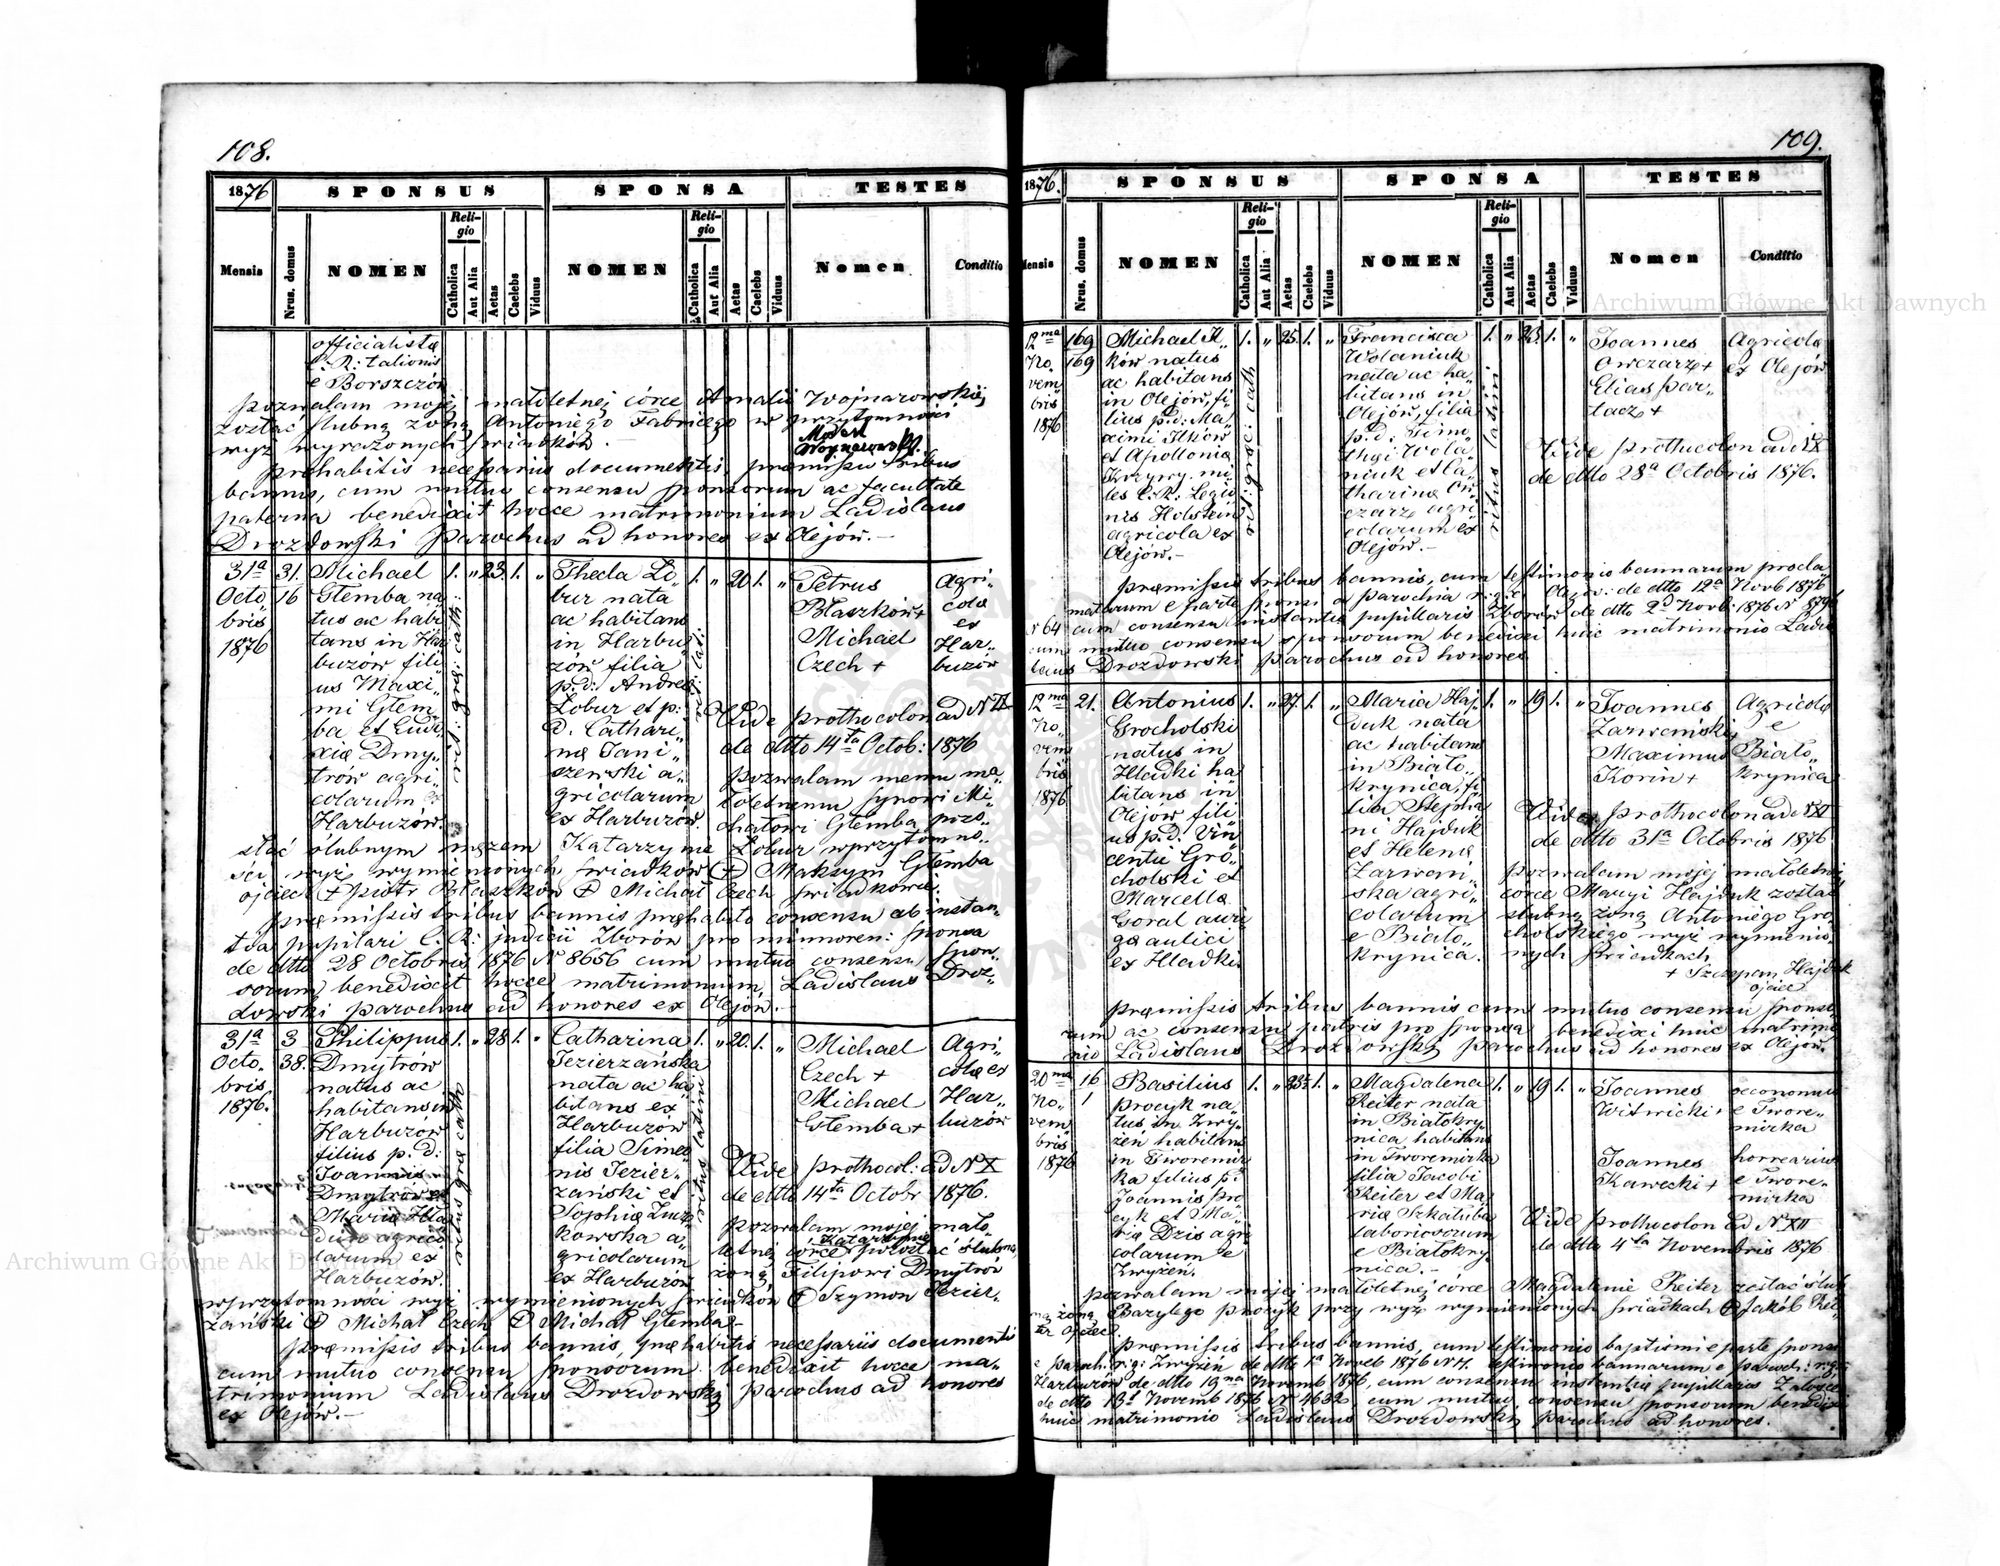 108.
1876
SPONSUS
SPONSA
TESTES
Mensis
Nrus. domus
NOMEN
Religio
Catholica
Aut Alia
Aetas
Caelebs
Viduus
NOMEN
Religio
Catholica
Aut Alia
Aetas
Caelebs
Viduus
Nomen
Conditio
officialistæ
C. R. talionis
e Borszczów
pozwalam mojej małoletnej córce Amalii Wojnarowskiej
zostać ślubną żoną Antoniego Fabriego w przytomności
wyż wyrażonych świadków.
prehabitis necessariis documentis, præmissis tribus
bannis, cum mutuo consensu sponsorum ac facultate
paterna benedixit hocce matrimonium Ladislaus
Drozdowski Parochus ad honores ex Olejów.
31a
Octo
bris
1876
31.
16
Michael
Glemba na
tus ac habi
tans in Har
buzów fili
us Maxi
mi Glem
ba et Eudo
xiæ Dmy
trów agri
colarum ex
Harbuzów.
rit: græ: cath:
1. „ 23. 1. „
Thecla Li
bur nata
ac habitans
in Harbu
zów filia
p.d: Andreæ
Lobur et p:
d. Cathari
næ Jani
szewski a
gricolarum
ex Harbuzów.
1. „ 20 1. „
Petrus
Błaszków +
Michael
Czech +
Agri
colæ
ex
Har
buzów
Vide prothocolon ad N IX
de dtto 14ta Octob: 1876
pozwalam memu ma
łoletnemu synowi Mi
chałowi Glemba pozo
stać ślubnym mężem Katarzynie Lobur w przytomno
ści wyż wymienionych świadków + Maksym Glemba
ojciec + Piotr Błaszków + Michał Czech świadkowie.
præmissis tribus bannis præhabito consensu ab instan
tia pupilari C. R. judicii Zborów pro minoren: sponsa
de dtto 28 Octobris 1876 N 8656 cum mutuo consensu spon
sorum benedixit hocce matrimonium, Ladislaus Droz
dowski parochus ad honores ex Olejów.
31a
Octo
bris
1876.
3
38.
Philippus
Dmytrów
natus ac
habitans in
Harbuzów
filius p. d:
Joannis
Dmytrów et
Mariæ
agrico
larum ex
Harbuzów.
ritus græ cath
1. „ 28 1. „
Catharina
Jezierzańska
nata ac ha
bitans ex
Harbuzów
filia Simeo
nis Jezier
zański et
Sophiæ
kowska a
gricolarum
ex Harbuzów
ritus latini
1. „ 20. 1. „
Michael
Czech +
Michael
Glemba +
Agri
colæ ex
Har
buzów
Vide prothocol: ad N X
de dtto 14ta Octobr 1876.
pozwalam mojej mało
letnej córce Katarzynie pozostać ślubną
żoną Filipowi Dmytrów
w przytomności wyż wymienionych świadków + Szymon Jezier
zański + Michał Czech + Michał Glemba
præmissis tribus bannis, præhabitis necessariis documentis
cum mutuo consensu sponsorum benedixit hocce ma
trimonium Ladislaus Drozdowski parochus ad honores
ex Olejów.
109.
1876.
SPONSUS
SPONSA
TESTES
Mensis
Nrus. domus
NOMEN
Religio
Catholica
Aut Alia
Aetas
Caelebs
Viduus
NOMEN
Religio
Catholica
Aut Alia
Aetas
Caelebs
Viduus
Nomen
Conditio
12ma
No
vem
bris
1876
169
169
Michael Il
ków natus
ac habitans
in Olejów, fi
lius p. d: Ma
ximi Ilków
et Apolloniæ
Krzywy mi
les C. R. Legio
nis Holstein
agricola ex
Olejów.
rit: græc: cath
1. „ 25. 1. „
Francisca
Wolaniuk
nata ac ha
bitans in
Olejów, filia
p. d: Timo
thei Wola
niuk et Ca
tharinæ Ow
czarz agri
colarum ex
Olejów.
ritus latini
1. „ 23. 1. „
Joannes
Owczarz +
Elias Par
tacz +
Agricolæ
ex Olejów
Vide prothocolon ad N X
de dtto 28a Octobris 1876.
præmissis tribus bannis, cum testimonio bannorum procla
matorum e parte sponsi a parochia r. g. Olejów: de dtto 12a Novb 1876
N 64 cum consensu instantiæ pupillaris Zborów de dtto 2d Novb: 1876 N 8796
cum mutuo consensu sponsorum benedixi huic matrimonio Ladis
laus Drozdowski parochus ad honores
12ma
No
vem
bris
1876
21.
Antonius
Grocholski
natus in
Hładki ha
bitans in
Olejów fili
us p. d. Vin
centii Gro
cholski et
Marcella
Goral auri
gæ aulici
ex Hładki
1. „ 27. 1. „
Maria Haj
duk nata
ac habitans
in Biało
krynica, fi
lia Stepha
ni Hajduk
et Helenæ
Zarwań
ska agri
colarum
e Biało
krynica.
1. „ 19 1. „
Joannes
Zarwański
Maximus
Korin +
Agricolæ
e
Biało
krynica
Vide prothocolon ad N XI
de dtto 31a Octobris 1876
pozwalam mojej małoletniej
córce Maryi Hajduk zostać
ślubną żoną Antoniego Gro
cholskiego wyż wymienio
nych świadkach
+ Szczepan Hajduk
ojciec
præmissis tribus bannis cum mutuo consensu sponso
rum ac consensu patris pro sponsa benedixi huic matrimo
nio Ladislaus Drozdowski parochus ad honores ex Olejów.
20ma
No
vem
bris
1876
16
1
Basilius
Procyk na
tus in Zwy
żeń habitans
in Tworemir
ka filius p:
Joannis Pro
cyk et Ma
riæ Dzis agri
colarum e
Zwyżeń.
1. „ 23½ 1. „
Magdalena
Reiter nata
in Białokry
nica habitans
in Tworemirka
filia Jacobi
Reiter et Ma
riæ Szkatuba
laboriosorum
e Białokry
nica.
1. „ 19 1. „
Joannes
Witwicki
Joannes
Kawecki +
oeconomus
e Twore
mirka
horrearius
e Twore
mirka
Vide prothocolon ad N XII
de dtto 4ta Novembris 1876
pozwalam mojej małoletniej córce Magdalenie Reiter zostać ślub
ną żoną Bazylego Procyk przy wyż wymienionych świadkach + Jakób Rei
ter Ojciec.
præmissis tribus bannis, cum testimonio baptismi e parte sponsi
e paroch: r: g: Zwyżeń de dtto 1a Novb 1876 N 14. testimonio bannorum e paroch: r: g:
Harbuzów de dtto 19na Novemb 1876, cum consensu instantiæ pupillaris Założce
de dtto 13t Novemb 1876 N 4632 cum mutuo consensu sponsorum benedixi
huic matrimonio Ladislaus Drozdowski parochus ad honores.
Archiwum Główne Akt Dawnych
Archiwum Główne Akt Dawnych